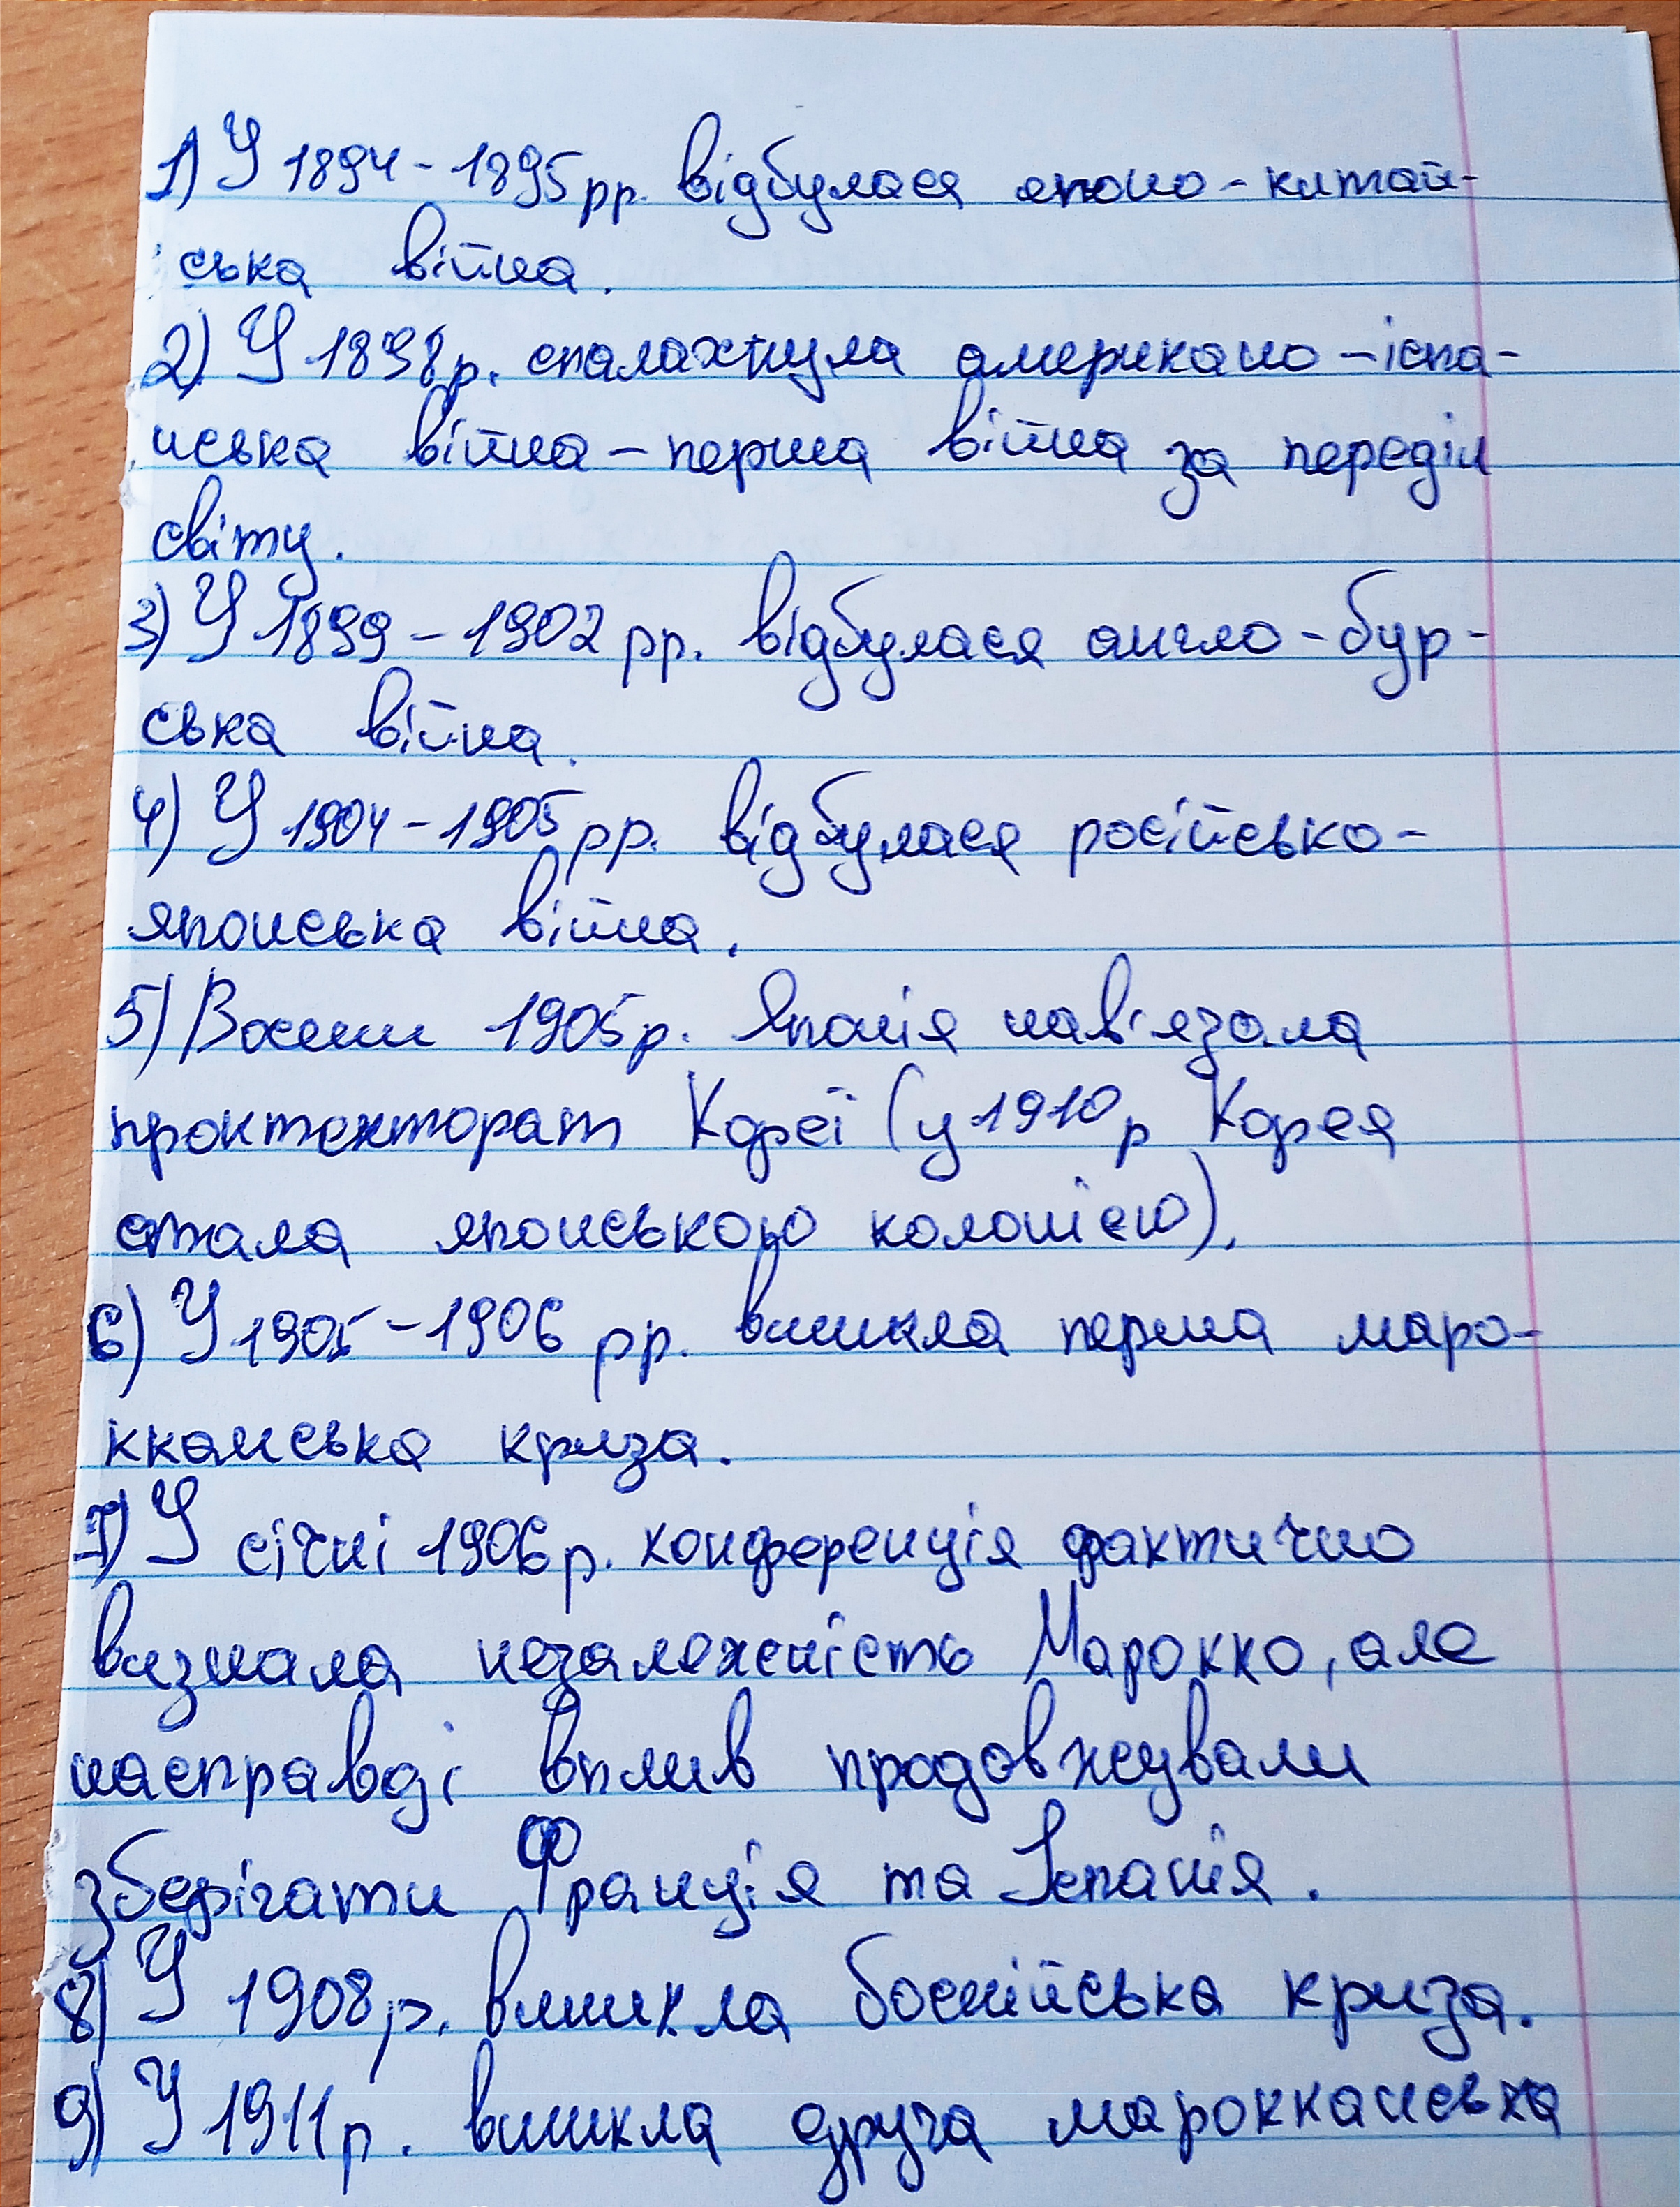 1) У 1894-1895 рр. відбулася японо-китай-
ська війна.
2) У 1898 р. спалахнула американо-іспа-
нська війна – перша війна за переділ
світу.
3) У 1899-1902 рр. відбулася англо-бур-
ська війна.
4) У 1904-1905 рр. відбулася російсько-
японська війна.
5) Восени 1905 р. Японія нав'язала
проктекторат Кореї (у 1910 р Корея
стала японською колонією).
6) У 1905-1906 рр. виникла перша маро-
кканська криза.
7) У січні 1906 р. конференція фактично
визнала незалежність Марокко, але
насправді вплив продовжували
зберігати Франція та Іспанія.
8) У 1908 р. виникла боснійська криза.
9) У 1911 р. виникла друга марокканська